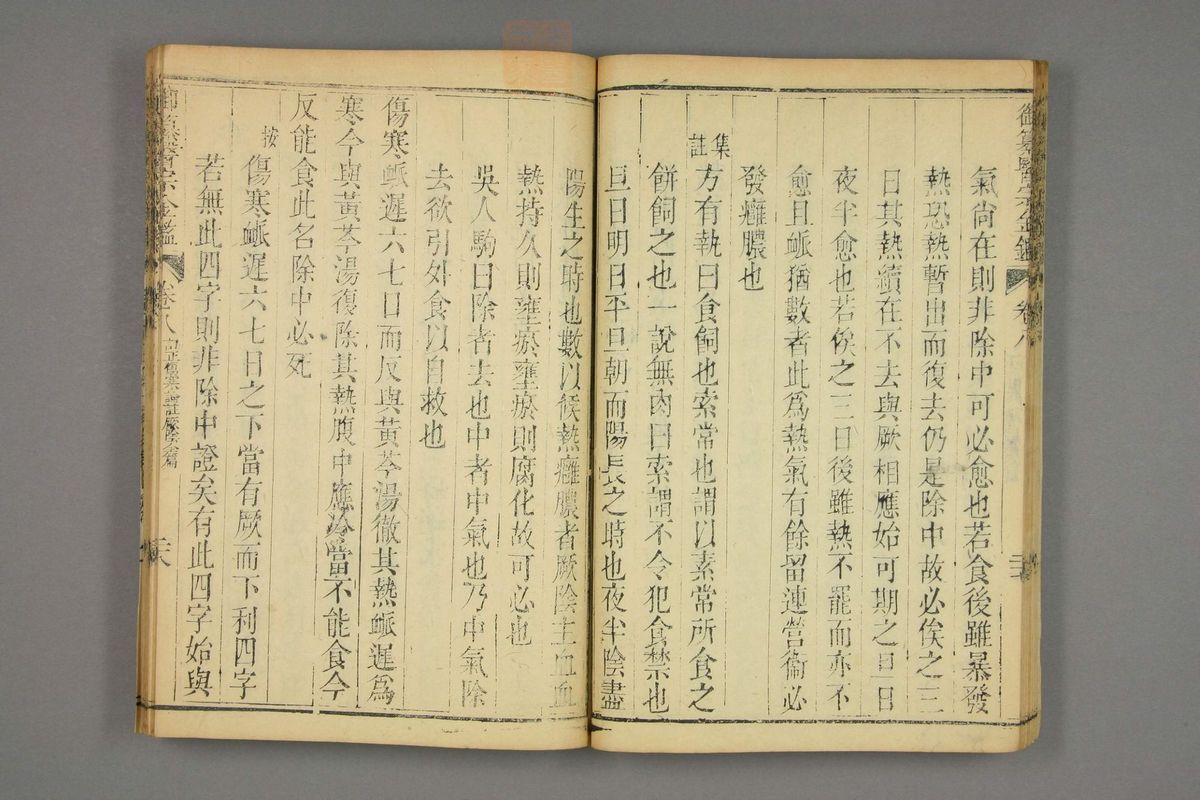 御纂醫宗金鑑 卷八
氣尚在則非除中可必愈也若食後雖暴發
熱恐熱暫出而復去仍是除中故必俟之三
日其熱續在不去與厥相應始可期之旦日
夜半愈也若俟之三日後雖熱不罷而亦不
愈且脈猶數者此為熱氣有餘留連營衞必
發癰膿也
集註
方有執曰食飼也索常也謂以素常所食之
餅飼之也一說無肉曰索謂不令犯食禁也
旦日明日平旦朝而陽長之時也夜半陰盡
陽生之時也數以候熱癰膿者厥陰主血血
熱持久則壅瘀壅瘀則腐化故可必也
吳人駒曰除者去也中者中氣也乃中氣除
去欲引外食以自救也
傷寒脈遲六七日而反與黃芩湯徹其熱脈遲為
寒今與黃芩湯復除其熱腹中應冷當不能食今
反能食此名除中必死
按
傷寒脈遲六七日之下當有厥而下利四字
若無此四字則非除中證矣有此四字始與
御纂醫宗金鑑 卷八